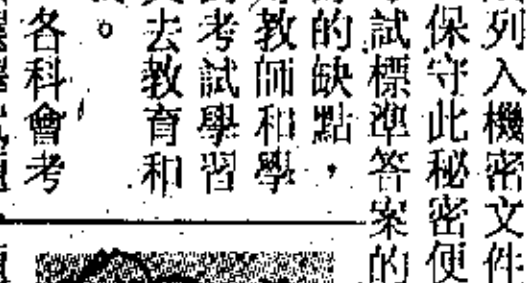 列入機密文件
保守此秘密便
試標準答案的
的缺點，
教師和學
考試學習
去教育和
。
各科會考